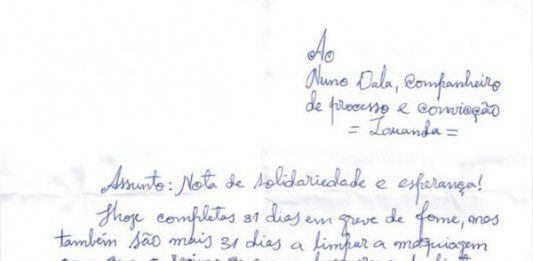 Ao
Nuno Dala, companheiro
de processo e convicção
= Luanda =
Assunto: Nota de solidariedade e esperança!
Hoje completas 31 dias em greve de fome, mas
também são mais 31 dias a limpar a maquiagem
com que o